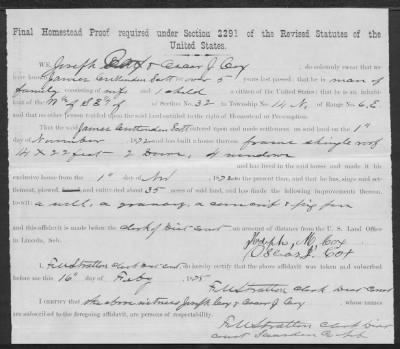 Final Homestead Proof required under Section 2291 of the Revised Statutes of the
United States.
WE, Joseph Cox & Oscar J. Cox, do solemnly swear that we
have known James Crittenden Batt for over 5 years last passed: that he is man of
family consisting of wife and 1 child a citizen of the United States; that he is an inhabit-
ant of the N½ of SE¼ of Section No. 32 in Township 14 N, of Range No. 6 E
and that no other person resided upon the said land entitled to the right of Homestead or Preemption.
That the said James Crittenden Batt entered upon and made settlement on said land on the 1st
day of November, 1872 and has built a house thereon frame shingle roof
14 X 22 feet 2 Doors, 4 windows
and has lived in the said house and made it his
exclusive home from the 1st day of Nov 1872 to the present time, and that he has, since said set-
tlement, plowed, and cultivated about 35 acres of said land, and has made the following improvements thereon,
to-wit: a well, a granary, a corncrib & pig pen
and this affidavit is made before the clerk of Dist Court on account of distance from the U. S. Land Office
in Lincoln, Neb.
Joseph M. Cox
Oscar J. Cox
I, clerk Dist Court, do hereby certify that the above affidavit was taken and subscribed
before me this 16th day of Feby 1875
clerk Dist Court
I certify that the above witnesses Joseph Cox & Oscar J. Cox, whose names
are subscribed to the foregoing affidavit, are persons of respectability.
clerk Dist
Court Saunders Co Neb